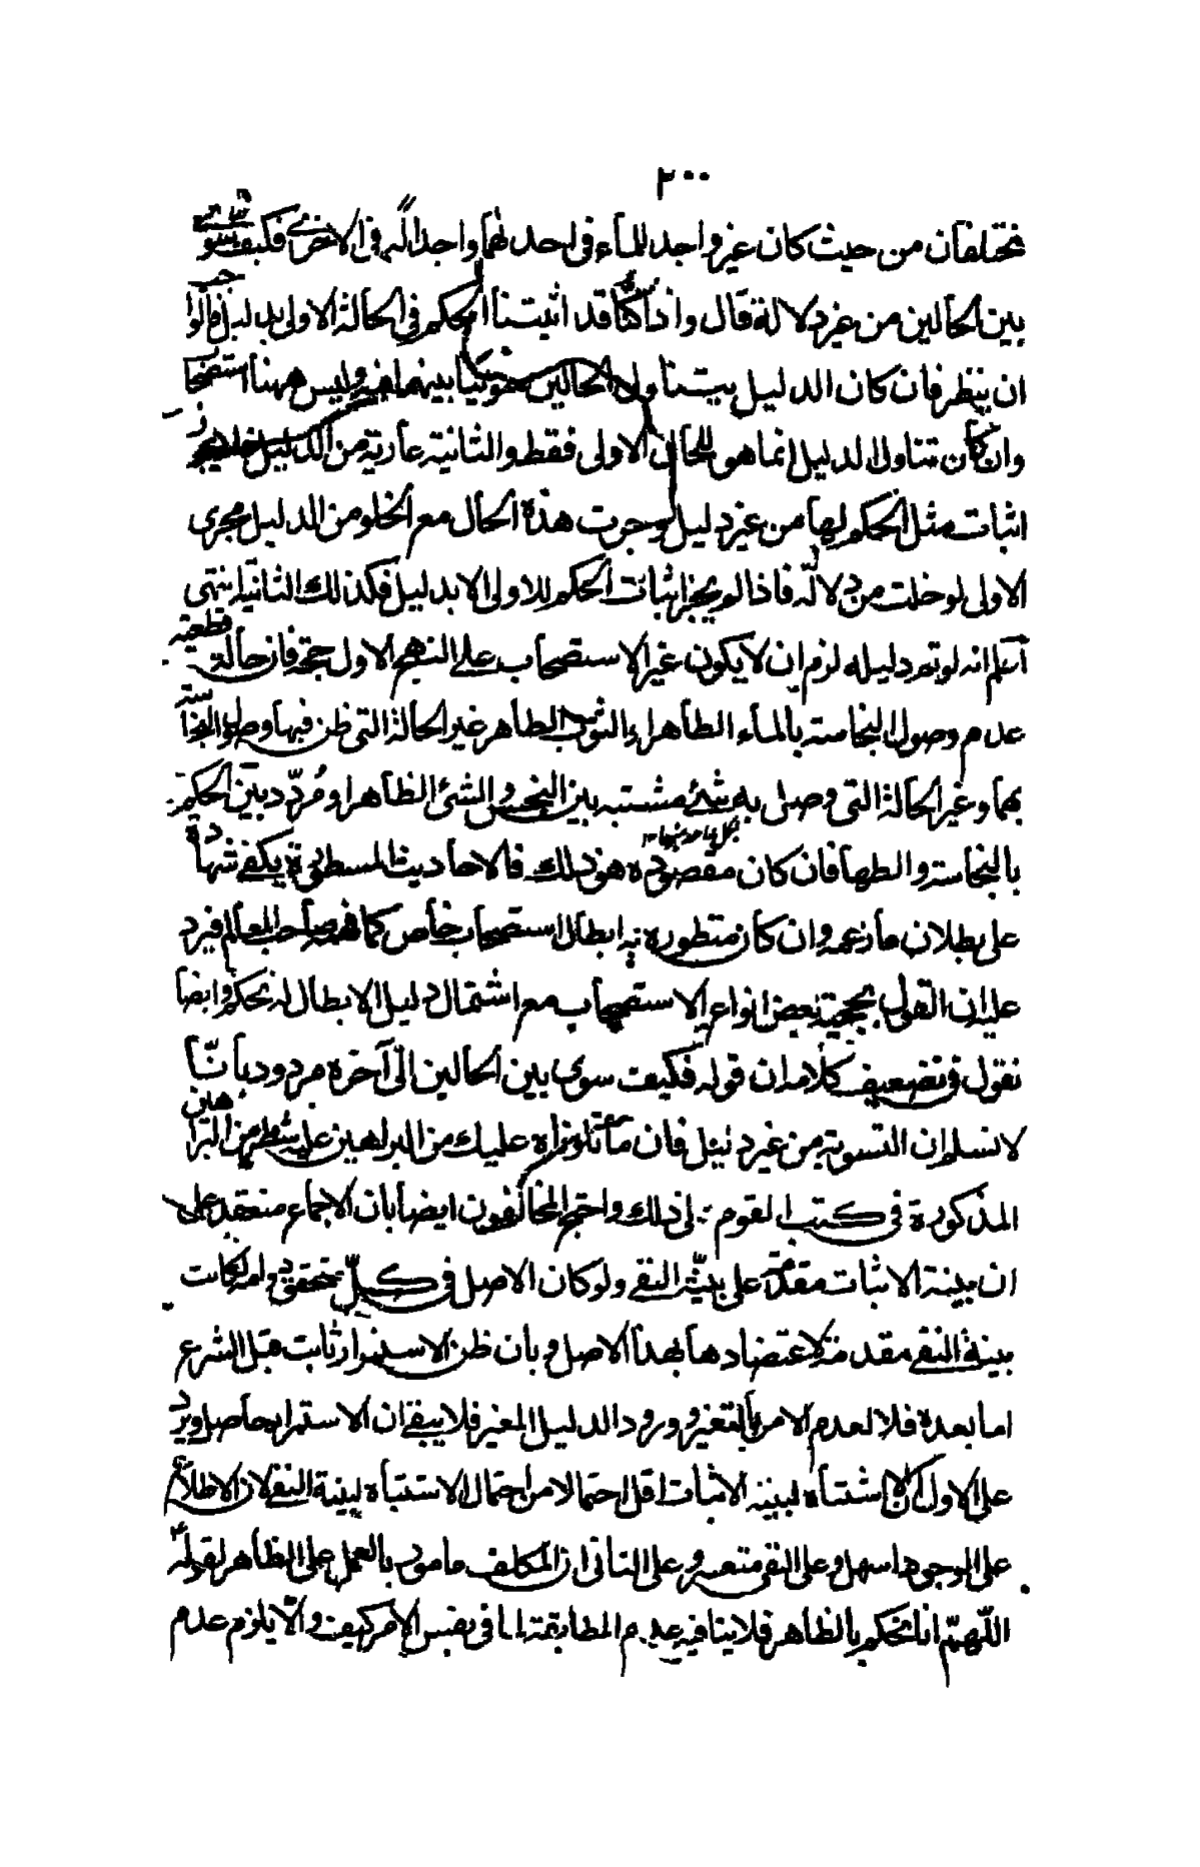 ٢٠٠
مختلفان من حيث كان غير واجد للماء في احدلهما واجدا له في الاخرى فكيف سوى
بين الحالين من غير دلالة قال واذا كنا قد اثبتنا الحكم في الحالة الاولى بدليل فالواجب
ان ينظر فان كان الدليل يتناول الحالين سوينا بينهما فيه وليس ههنا استصحاب
وان كان تناول الدليل انما هو للحال الاولى فقط والثانية عارية من الدليل فلا يجوز
اثبات مثل الحكم لها من غير دليل وجرت هذه الحال مع الخلو من الدليل مجرى
الاولى لو خلت من دلالة فاذا لم يجز اثبات الحكم للاولى الا بدليل فكذلك الثانية انتهى
اعلم انه لو تم دليله لزم ان لا يكون غير الاستصحاب على النهج الاول حجة فان حالة قطعية
عدم وصول النجاسة بالماء الطاهر او الثوب الطاهر غير الحالة التي ظن فيها وصول النجاسة
بهما وغير الحالة التي وصل به شئ مشتبه بين النجس والشئ الطاهر او مردد بين الحكمين
بالنجاسة والطها فان كان مقصوده هو ذلك فالاحاديث المسطورة يكفي شهادة
على بطلان ما زعمه وان كان منظوره به ابطال استصحاب خاص كما فهمه صاحب المعالم فيرد
عليه ان القول بحجية بعض انواع الاستصحاب مع اشتمال دليل الابطال له تحكم وايضا
نقول في تضعيف كلامه ان قوله فكيف سوى بين الحالين الى آخره مردود بانّا
لا نسلم ان التسوية من غير دليل فان ما تلوناه عليك من البراهين عليه شطر من البراهين
المذكورة في كتب القوم في ذلك واحتج المخالفون ايضا بان الاجماع منعقد على
ان بينة الاثبات مقدمة على بينة النفي ولو كان الاصل في كل متحقق دوامه لكانت
بينة النفي مقدمة لاعتضادها بهذا الاصل وبان ظن الاستمرار ثابت قبل الشرع
اما بعده فلا لعدم الامن بالتغير وورود الدليل المغير فلا يبقى ان الاستمرار حاصل ويرد
على الاول ان الاشتباه لبينة الاثبات اقل احتمالا من احتمال الاشتباه لبينة النفي لان الاطلاع
على الوجود اسهل وعلى النفي متعسر وعلى الثاني ان المكلف مامور بالعمل على الظاهر لقوله ع
اللهم انا نحكم بالظاهر فلا ينافيه عدم المطابقة لما في نفس الامر كيف والّا يلزم عدم